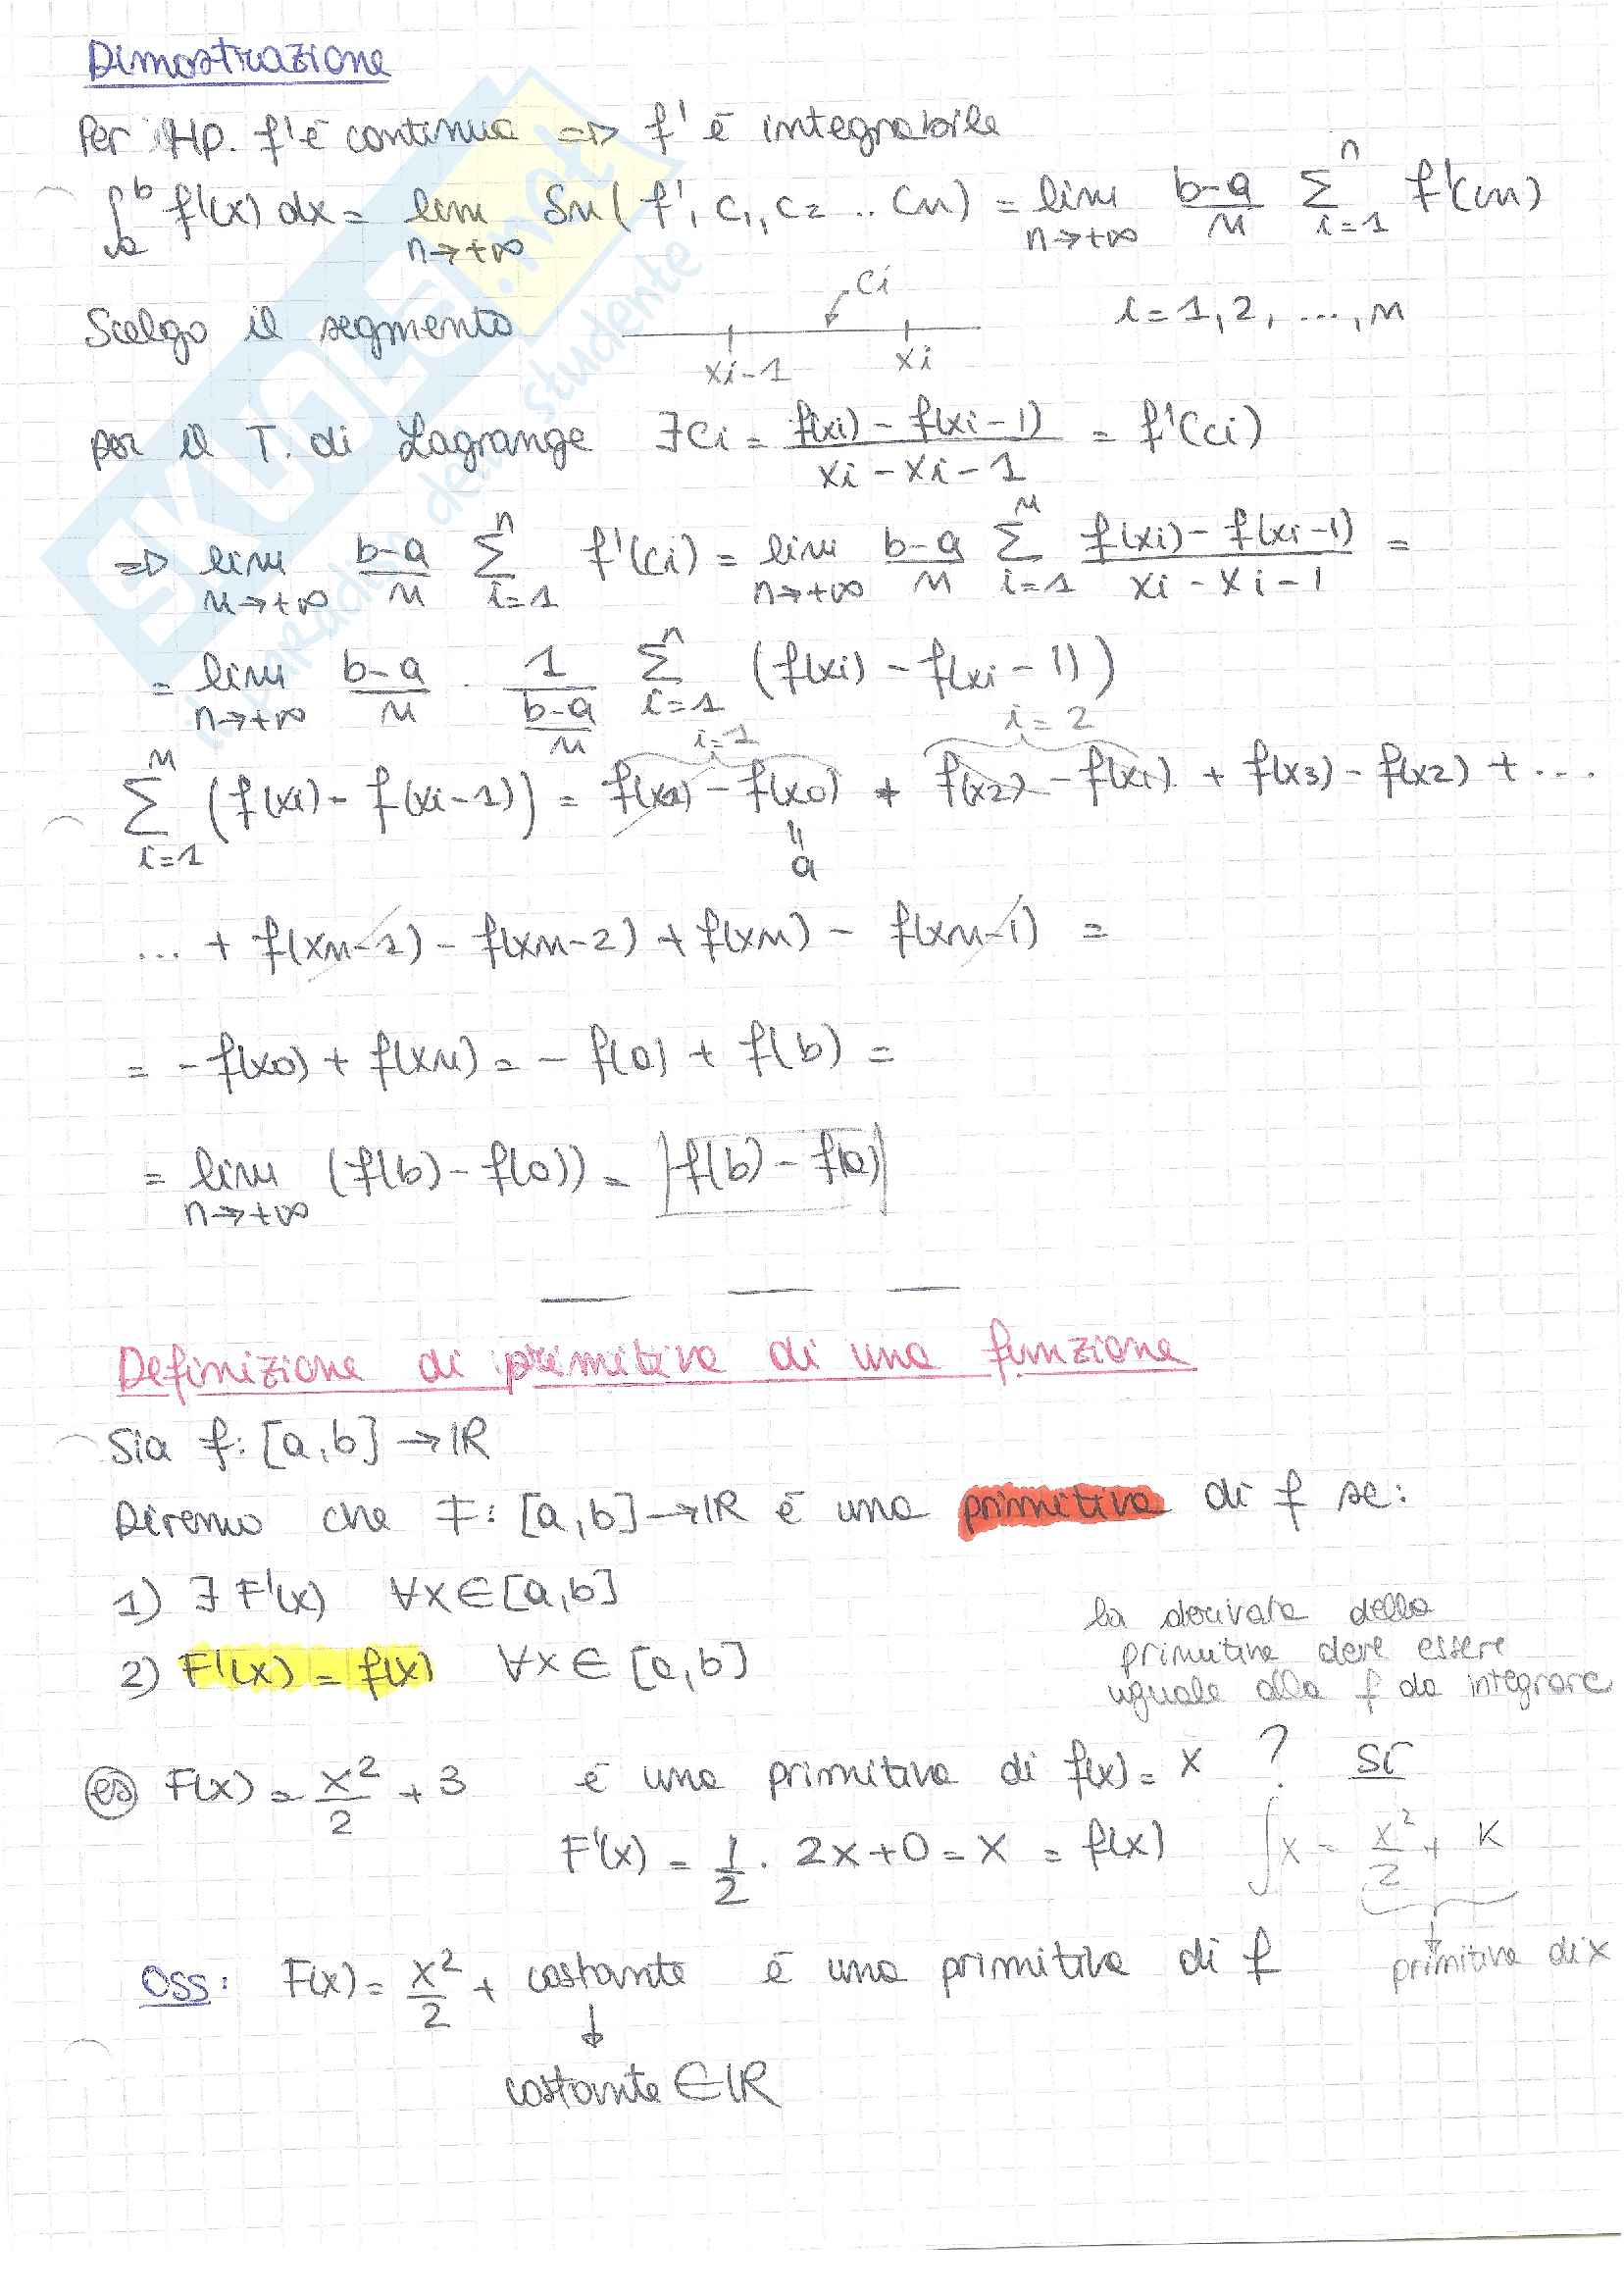 Dimostrazione
Per Hp. f' é continua => f' é integrabile
∫_a^b f'(x) dx = lim_{n→+∞} Sn( f', c1, c2 .. cn) = lim_{n→+∞} b-a/n Σ_{i=1}^n f'(cn)
Scelgo il segmento xi-1 ci xi i = 1, 2, ..., n
per il T. di Lagrange ∃ ci = f(xi) - f(xi-1) / xi - xi-1 = f'(ci)
=> lim_{n→+∞} b-a/n Σ_{i=1}^n f'(ci) = lim_{n→+∞} b-a/n Σ_{i=1}^n f(xi) - f(xi-1) / xi - xi-1 =
= lim_{n→+∞} b-a/n · 1/(b-a/n) Σ_{i=1}^n (f(xi) - f(xi-1))
i=1 i=2
Σ_{i=1}^n (f(xi) - f(xi-1)) = f(x1) - f(x0) + f(x2) - f(x1) + f(x3) - f(x2) + ...
"
a
... + f(xn-1) - f(xn-2) + f(xn) - f(xn-1) =
= - f(x0) + f(xn) = - f(a) + f(b) =
= lim_{n→+∞} (f(b) - f(a)) = f(b) - f(a)
Definizione di primitiva di una funzione
Sia f: [a,b] → IR
Diremo che F: [a,b] → IR é una primitiva di f se:
1) ∃ F'(x) ∀x ∈ [a,b]
2) F'(x) = f(x) ∀x ∈ [a,b]
la derivata della
primitiva deve essere
uguale alla f da integrare
es F(x) = x²/2 + 3 é una primitiva di f(x) = x ? SI
F'(x) = 1/2 · 2x + 0 = x = f(x) ∫x = x²/2 + K
primitiva di x
OSS: F(x) = x²/2 + costante é una primitiva di f
↓
costante ∈ IR
SKUOLA.net